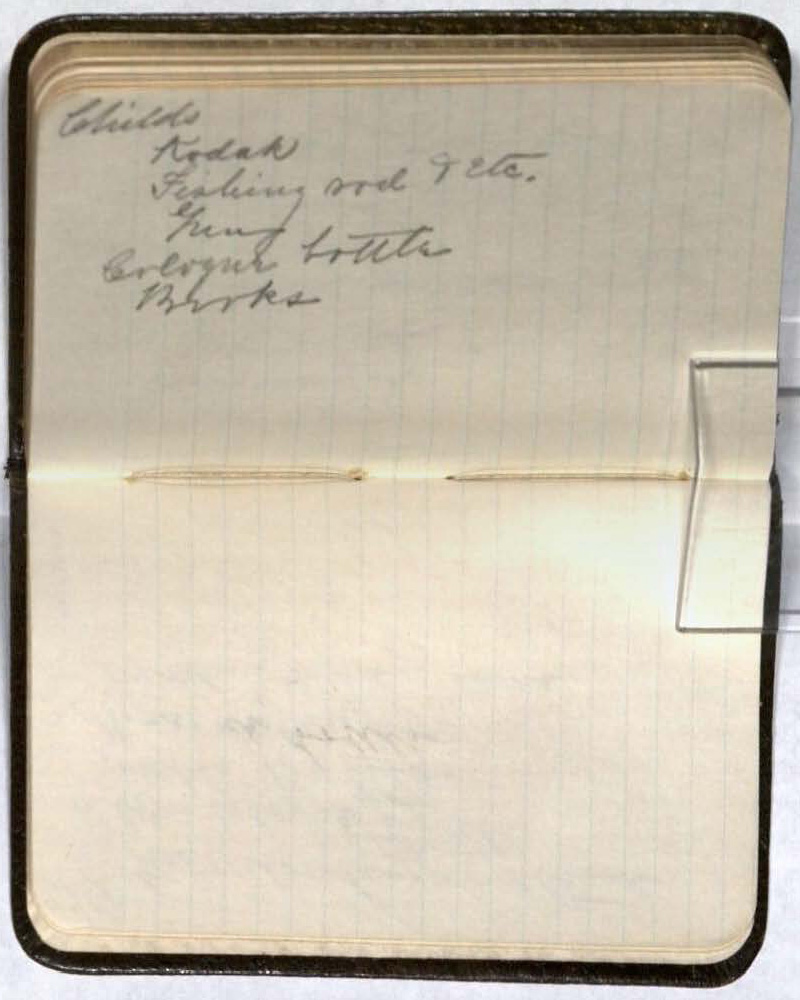 Childs
Kodak
Fishing rod & etc.
Cologne bottle
Books